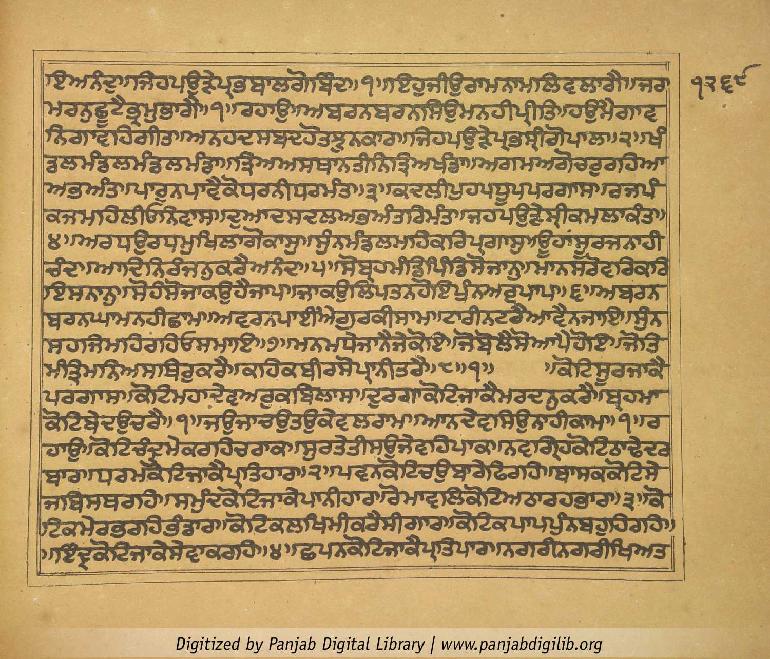 ਇਅਨੰਦਾ॥ਜਿਹਪਉੜੇਪ੍ਰਭਬਾਲਗੋਬਿੰਦ॥੧॥ਇਹੁਜੀਉਰਾਮਨਾਮਲਿਵਲਾਗੈ॥ਜਰਾ
ਮਰਨੁਛੂਟੈਭ੍ਰਮੁਭਾਗੈ॥੧॥ਰਹਾਉ॥ਅਬਰਨਬਰਨਸਿਉਮਨਹੀਪ੍ਰੀਤਿ॥ਹਉਮੈਗਾਵ
ਨਿਗਾਵਹਿਗੀਤ॥ਅਨਹਦਸਬਦਹੋਤਝੁਨਕਾਰ॥ਜਿਹਪਉੜੇਪ੍ਰਭਸ੍ਰੀਗੋਪਾਲ॥੨॥ਖੰ
ਡਲਮੰਡਲਮੰਡਲਮੰਡਾ॥ਤ੍ਰਿਅਅਸਥਾਨਤੀਨਿਤ੍ਰਿਅਖੰਡਾ॥ਅਗਮਅਗੋਚਰੁਰਹਿਆ
ਅਭਅੰਤ॥ਪਾਰੁਨਪਾਵੈਕੋਧਰਨੀਧਰਮੰਤ॥੩॥ਕਦਲੀਪੁਹਪਧੂਪਪਰਗਾਸ॥ਰਜਪੰ
ਕਜਮਹਿਲੀਓਨਿਵਾਸ॥ਦੁਆਦਸਦਲਅਭਅੰਤਰਿਮੰਤ॥ਜਹਪਉੜੇਸ੍ਰੀਕਮਲਾਕੰਤ॥
੪॥ਅਰਧਉਰਧਮੁਖਿਲਾਗੋਕਾਸੁ॥ਸੁੰਨਮੰਡਲਮਹਿਕਰਿਪ੍ਰਗਾਸੁ॥ਊਹਾਂਸੂਰਜਨਾਹੀ
ਚੰਦ॥ਆਦਿਨਿਰੰਜਨੁਕਰੈਅਨੰਦ॥੫॥ਸੋਬ੍ਰਹਮੰਡਿਪਿੰਡਿਸੋਜਾਨੁ॥ਮਾਨਸਰੋਵਰਿਕਰਿ
ਇਸਨਾਨੁ॥ਸੋਹੰਸੋਜਾਕਉਹੈਜਾਪ॥ਜਾਕਉਲਿਪਤਨਹੋਇਪੁੰਨਅਰੁਪਾਪ॥੬॥ਅਬਰਨ
ਬਰਨਘਾਮਨਹੀਛਾਮ॥ਅਵਰਨਪਾਈਐਗੁਰਕੀਸਾਮ॥ਟਾਰੀਨਟਰੈਆਵੈਨਜਾਇ॥ਸੁੰਨ
ਸਹਜਮਹਿਰਹਿਓਸਮਾਇ॥੭॥ਮਨਮਧੇਜਾਨੈਜੇਕੋਇ॥ਜੋਬੋਲੈਸੋਆਪੈਹੋਇ॥ਜੋਤਿ
ਮੰਤ੍ਰਿਮਨਿਅਸਥਿਰੁਕਰੈ॥ਕਹਿਕਬੀਰਸੋਪ੍ਰਾਨੀਤਰੈ॥੮॥੧॥ ॥ਕੋਟਿਸੂਰਜਾਕੈ
ਪਰਗਾਸ॥ਕੋਟਿਮਹਾਦੇਵਅਰੁਕਬਿਲਾਸ॥ਦੁਰਗਾਕੋਟਿਜਾਕੈਮਰਦਨੁਕਰੈ॥ਬ੍ਰਹਮਾ
ਕੋਟਿਬੇਦਉਚਰੈ॥੧॥ਜਉਜਾਚਉਤਉਕੇਵਲਰਾਮ॥ਆਨਦੇਵਸਿਉਨਾਹੀਕਾਮ॥੧॥ਰ
ਹਾਉ॥ਕੋਟਿਚੰਦ੍ਰਮੇਕਰਹਿਚਰਾਕ॥ਸੁਰਤੇਤੀਸਉਜੇਵਹਿਪਾਕ॥ਨਵਗ੍ਰਿਹਕੋਟਿਠਾਢੇਦਰ
ਬਾਰ॥ਧਰਮਕੋਟਿਜਾਕੈਪ੍ਰਤਿਹਾਰ॥੨॥ਪਵਨਕੋਟਿਚਉਬਾਰੇਫਿਰਹਿ॥ਬਾਸਕਕੋਟਿਸੇ
ਜਬਿਸਥਰਹਿ॥ਸਮੁੰਦਕੋਟਿਜਾਕੇਪਾਨੀਹਾਰ॥ਰੋਮਾਵਲਿਕੋਟਿਅਠਾਰਹਭਾਰ॥੩॥ਕੋ
ਟਿਕਮੇਰਭਰਹਿਭੰਡਾਰ॥ਕੋਟਿਕਲਖਿਮੀਕਰੈਸੀਗਾਰ॥ਕੋਟਿਕਪਾਪਪੁੰਨਬਹੁਹਿਰਹਿ॥
॥ਇੰਦ੍ਰਕੋਟਿਜਾਕੇਸੇਵਾਕਰਹਿ॥੪॥ਛਪਨਕੋਟਿਜਾਕੈਪ੍ਰਤਿਹਾਰ॥ਨਗਰੀਨਗਰੀਖਿਅਤ
੧੨੬੯
Digitized by Panjab Digital Library | www.panjabdigilib.org